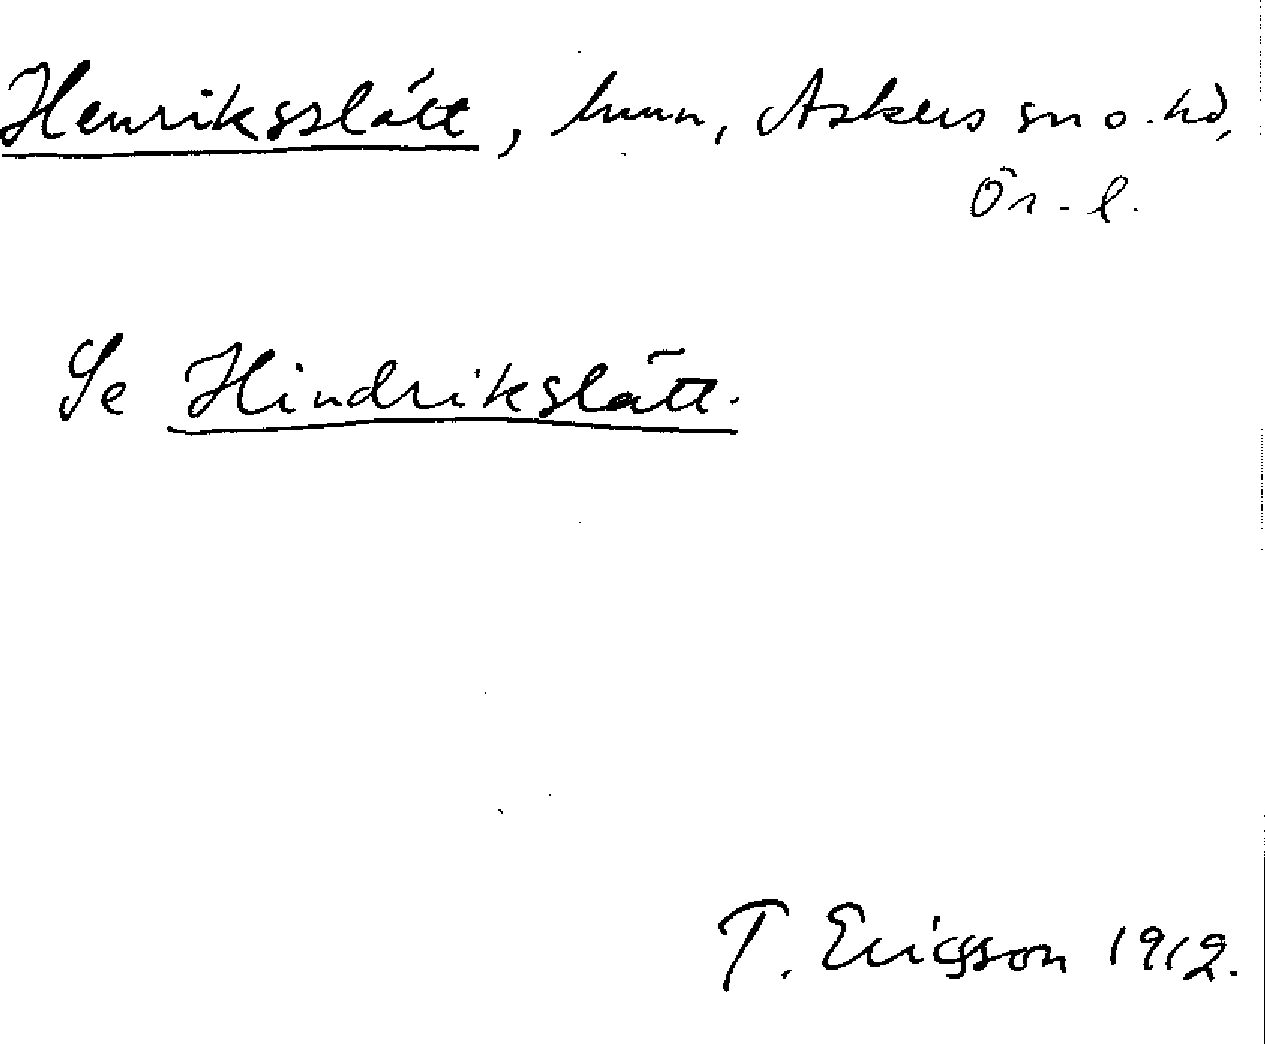 Henriksslätt, hmn, Askers sn o. hd,
Ör. l.
Se Hindrikslätt.
T. Ericsson 1912.